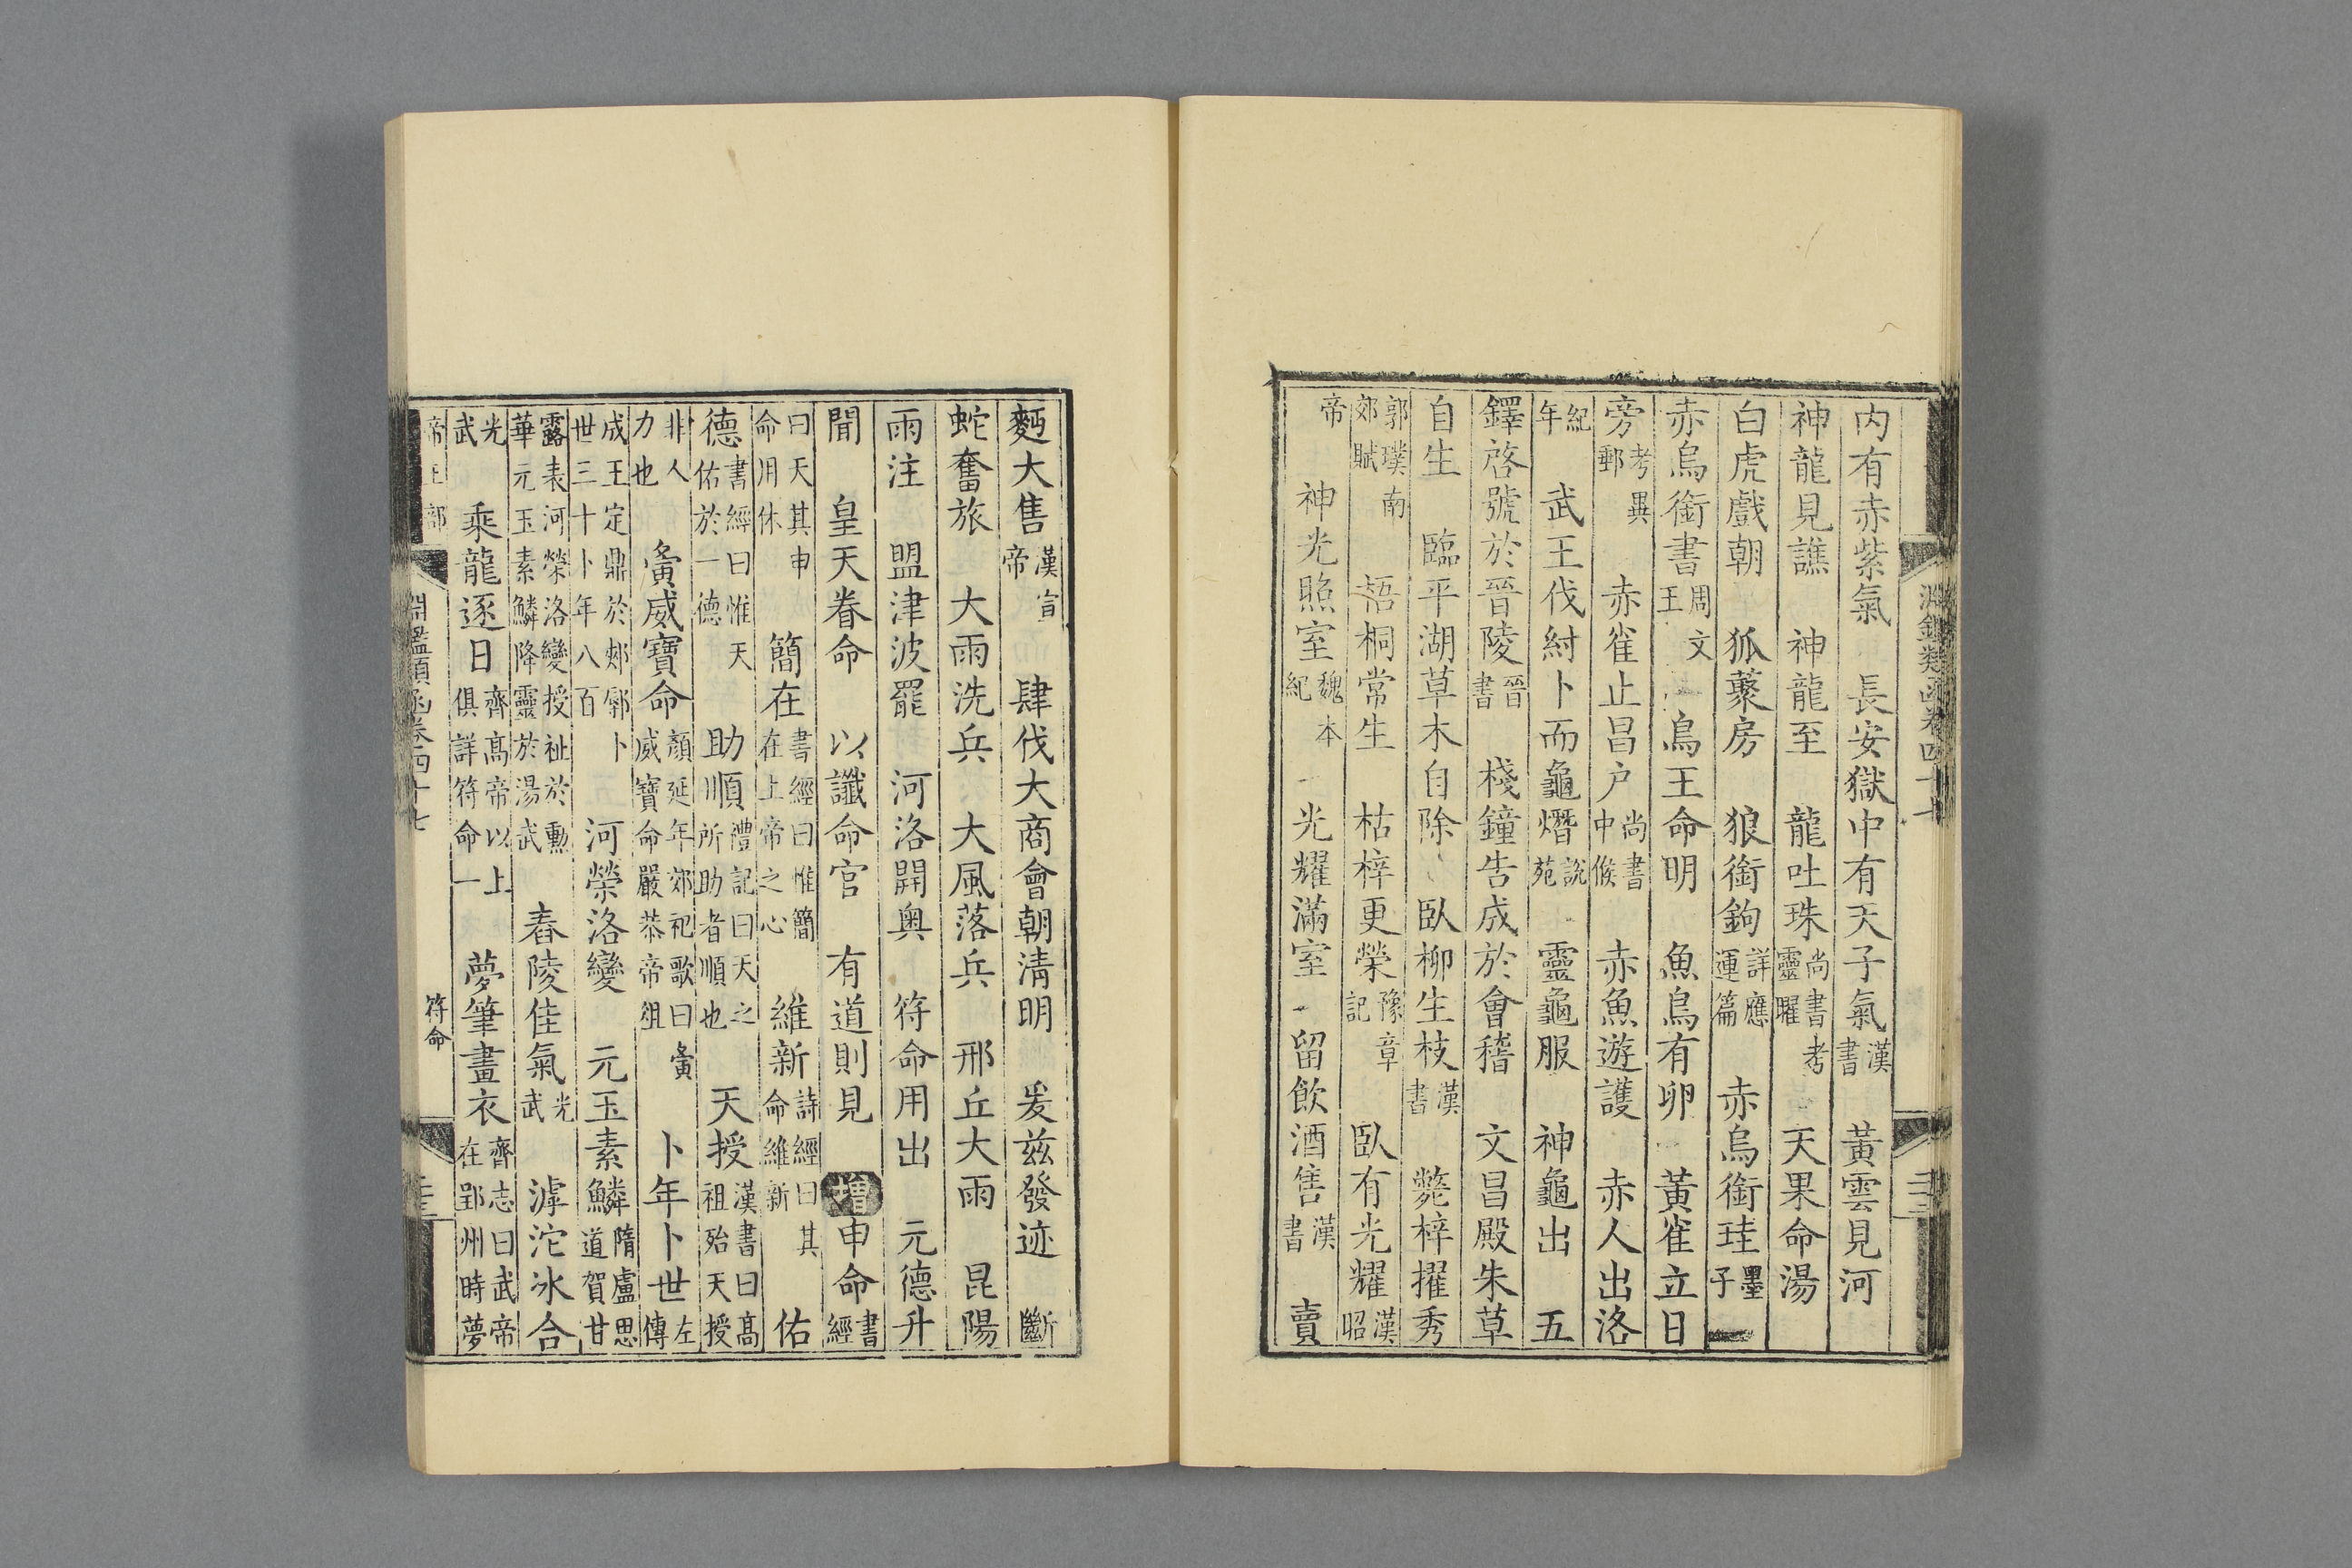 淵鑑類函卷四十七
內有赤紫氣　長安獄中有天子氣漢書　黃雲見河
神龍見譙　神龍至　龍吐珠尚書考靈曜　天果命湯
白虎戲朝　狐藂房　狼銜鉤詳應運篇　赤烏銜珪墨子
赤烏銜書周文王　烏王命明　魚烏有卵　黃雀立日
旁考異郵　赤雀止昌户尚書中候　赤魚遊護　赤人出洛
紀年　武王伐紂卜而龜熸說苑　靈龜服　神龜出　五
鐸啓號於晉陵晉書　棧鐘告成於會稽　文昌殿朱草
自生　臨平湖草木自除　臥柳生枝漢書　薨梓擢秀
郭璞南郊賦　梧桐常生　枯梓更榮豫章記　臥有光耀漢昭
帝　神光照室魏本紀　光耀滿室　留飲酒售漢書　賣
麪大售漢宣帝　肆伐大商會朝清明　爰茲發迹　斷
蛇奮旅　大雨洗兵　大風落兵　邢丘大雨　昆陽
雨注　盟津波罷　河洛開奧　符命用出　元德升
聞　皇天眷命　以讖命官　有道則見　增申命書經
曰天其申命用休　簡在書經曰惟簡在上帝之心　維新詩經曰其命維新　佑
德書經曰惟天佑於一德　助順禮記曰天之所助者順也　天授漢書曰高祖殆天授
非人力也　夤威寶命顏延年郊祀歌曰夤威寶命嚴恭帝祖　卜年卜世左傳
成王定鼎於郟鄏卜世三十卜年八百　河榮洛變　元玉素鱗隋盧思道賀甘
露表河榮洛變授祉於勳華元玉素鱗降靈於湯武　舂陵佳氣光武　滹沱冰合
光武　乘龍逐日齊高帝以上俱詳符命一　夢筆畫衣齊志曰武帝在郢州時夢
帝王部
淵鑑類函卷四十七
符命